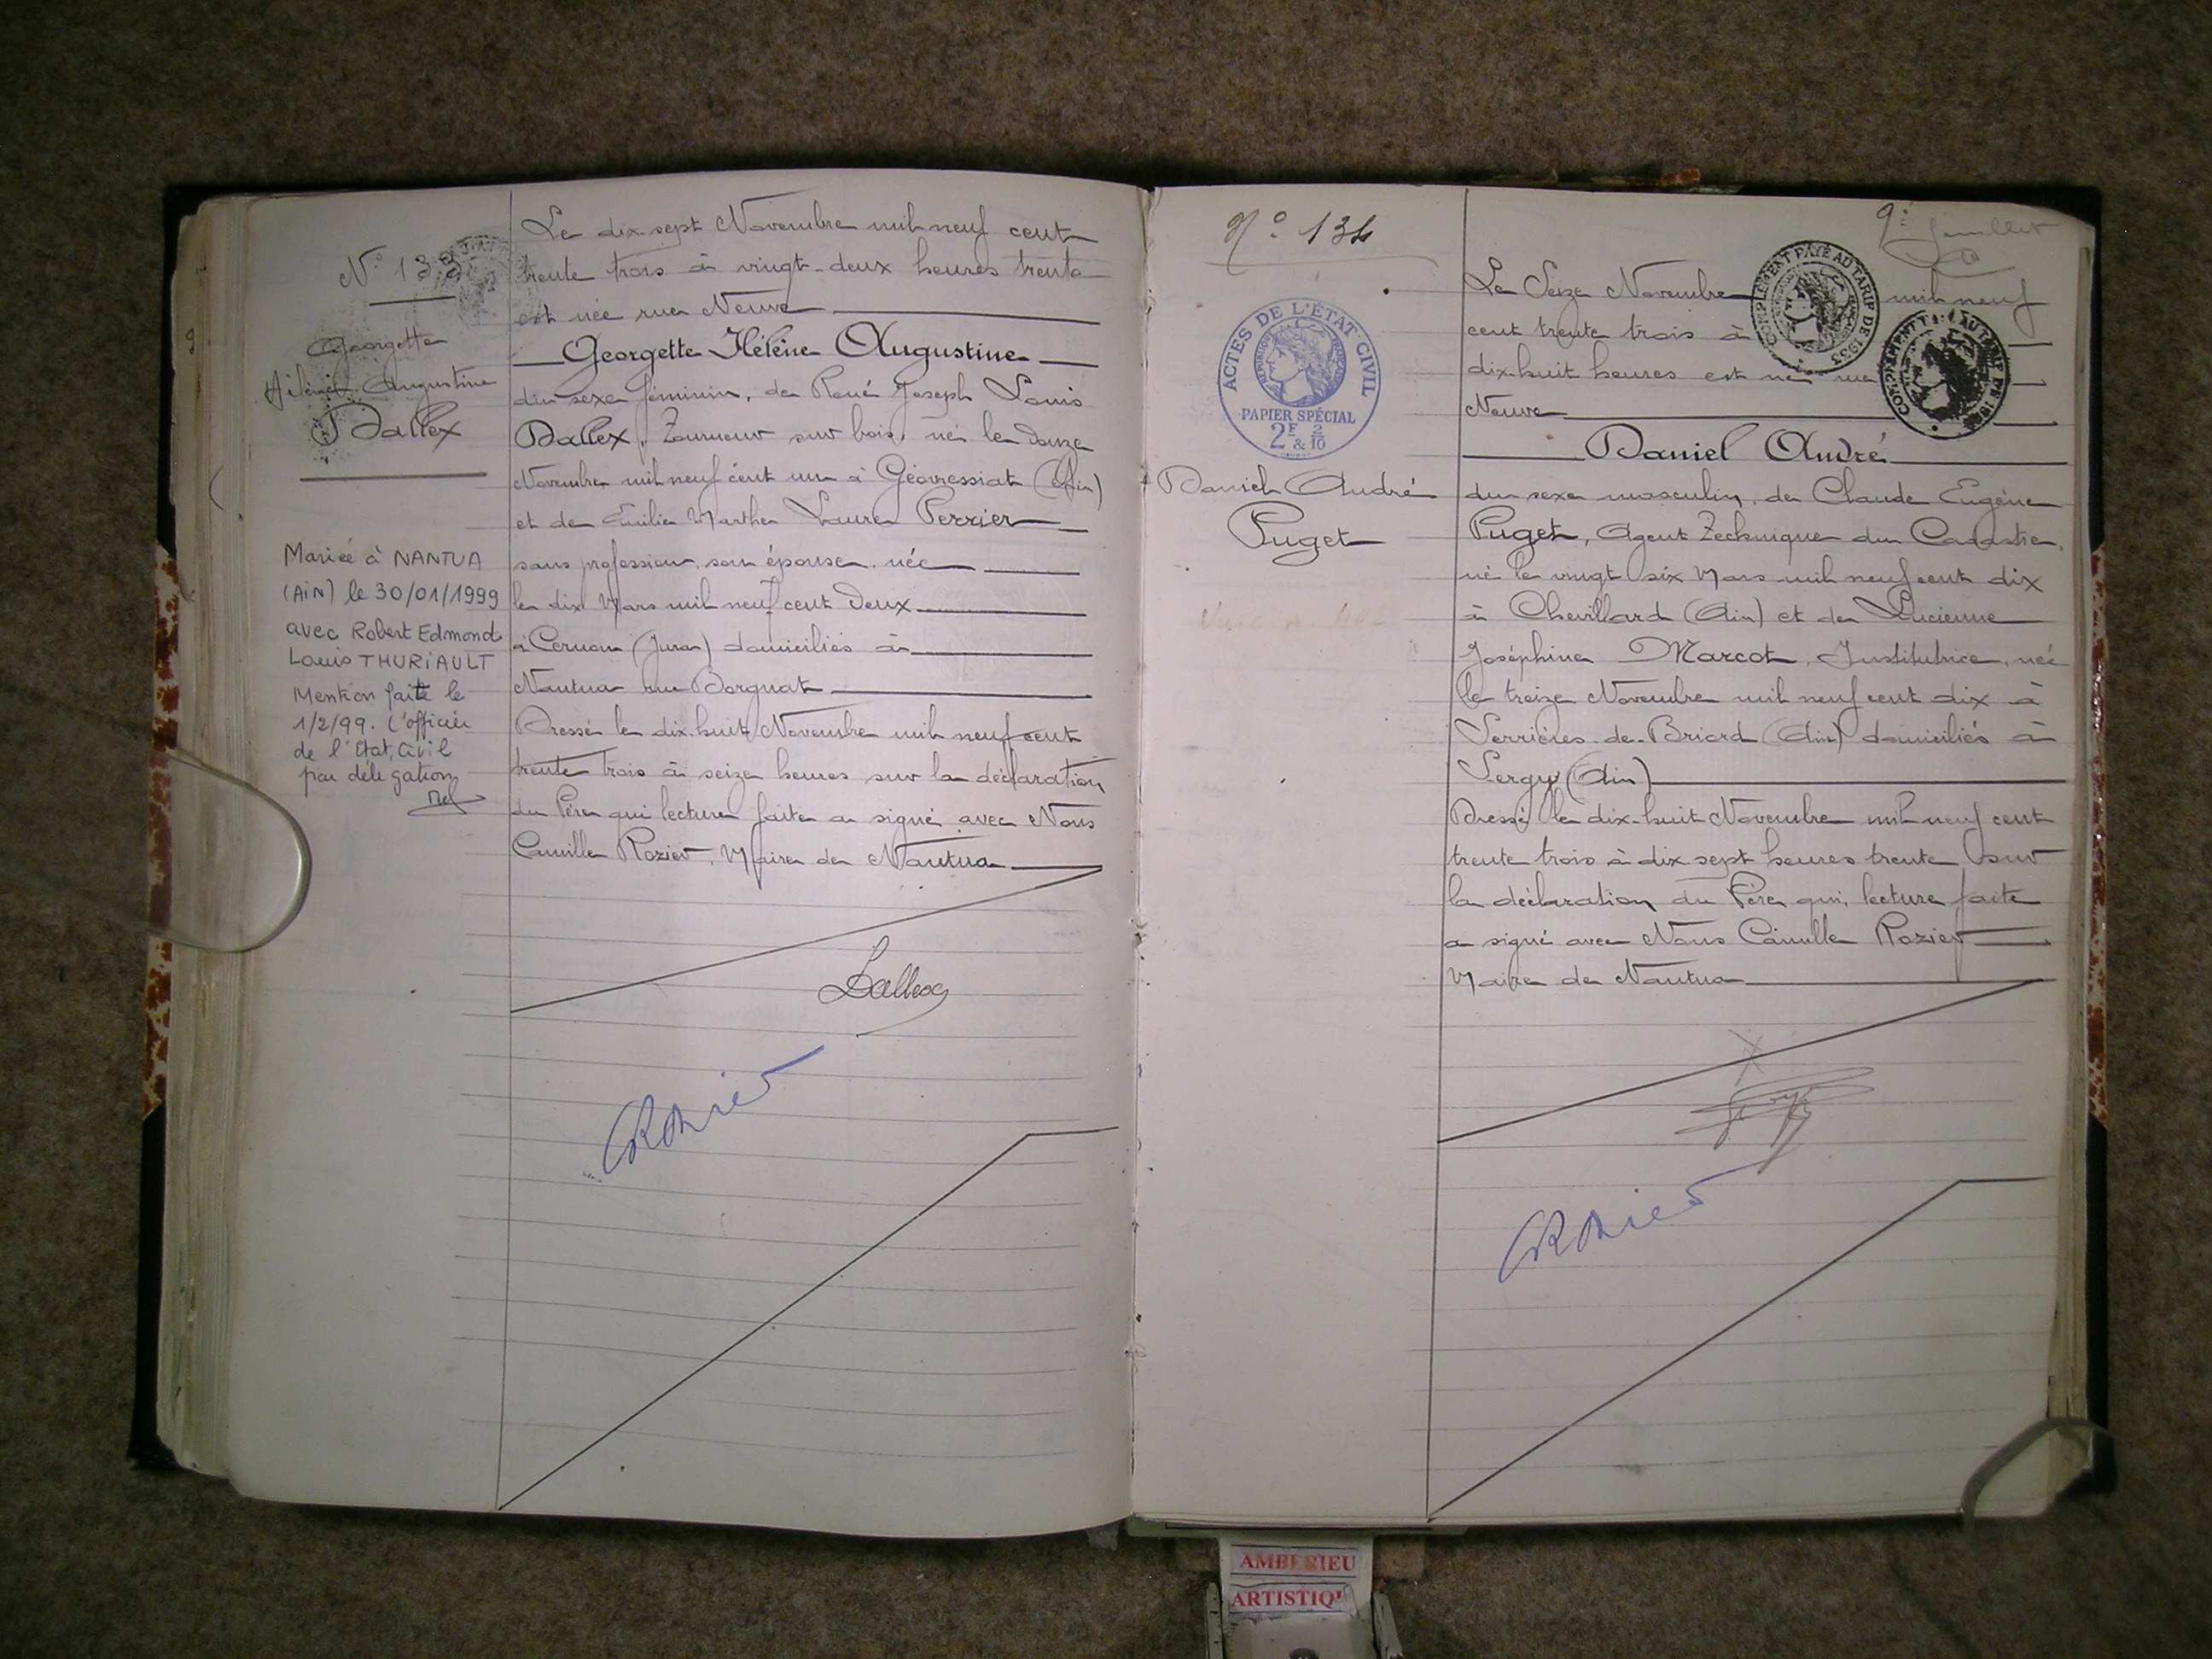 N° 133
Georgette
Hélène Augustine
Dallex
Mariée à NANTUA
(AiN) le 30/01/1999
avec Robert Edmond
Louis THURIAULT
Mention faite le
1/2/99. L'officier
de l'Etat Civil
par délégation
Le dix-sept Novembre mil neuf cent
trente trois à vingt-deux heures trente
est née rue Neuve
Georgette Hélène Augustine
du sexe féminin, de René Joseph Louis
Dallex, Tourneur sur bois, né le douze
Novembre mil neuf cent un à Géovressiat (Ain)
et de Emilie Marthe Laure Perrier
sans profession, son épouse, née
le dix Mars mil neuf cent deux
à Cernon (Jura) domiciliés à
Nantua rue Borgnat
Dressé le dix-huit Novembre mil neuf cent
trente trois à seize heures sur la déclaration
du Père qui lecture faite a signé avec Nous
Camille Rozier, Maire de Nantua
Dallex
CRozier
N° 134
ACTES DE L'ÉTAT CIVIL
RÉPUBLIQUE FRANÇAISE
PAPIER SPÉCIAL
2F & 2/10
Daniel André
Puget
9e feuillet
COMPLÉMENT PAYÉ AU TARIF DE 1933
Le Seize Novembre mil neuf
cent trente trois à
dix-huit heures est né rue
Neuve
Daniel André
du sexe masculin, de Claude Eugène
Puget, Agent Technique du Cadastre,
né le vingt six Mars mil neuf cent dix
à Chevillard (Ain) et de Lucienne
Joséphine Marcot, Institutrice, née
le treize Novembre mil neuf cent dix à
Serrières-de-Briord (Ain) domiciliés à
Sergy (Ain)
Dressé le dix-huit Novembre mil neuf cent
trente trois à dix sept heures trente sur
la déclaration du Père qui, lecture faite
a signé avec Nous Camille Rozier
Maire de Nantua
CRozier
AMBERIEU
ARTISTIQU